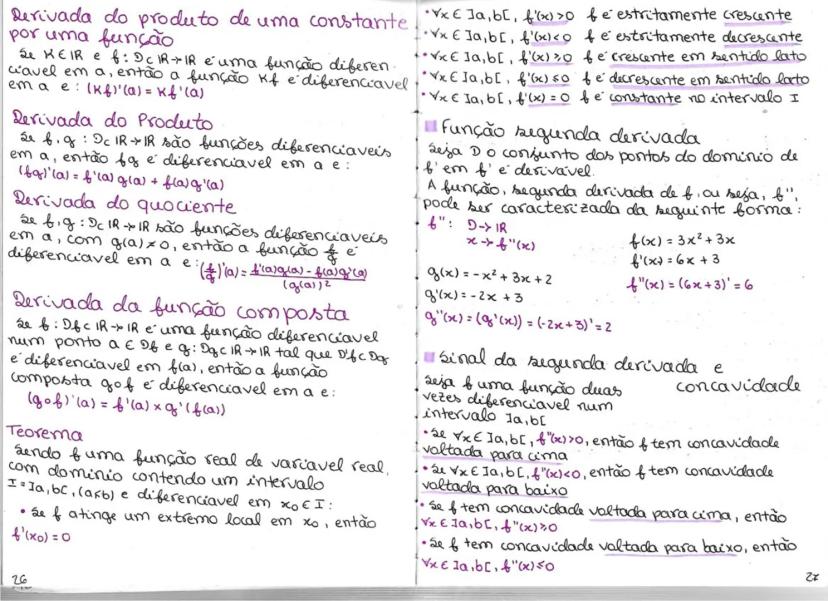 Derivada do produto de uma constante
por uma função
Se K∈IR e f: D⊂IR→IR é uma função diferen-
ciavel em a, então a função Kf é diferenciavel
em a e: (Kf)'(a) = Kf'(a)
Derivada do Produto
Se f, g : D⊂IR→IR são funções diferenciaveis
em a, então fg é diferenciavel em a e:
(fg)'(a) = f'(a)g(a) + f(a)g'(a)
Derivada do quociente
Se f, g : D⊂IR→IR são funções diferenciaveis
em a, com g(a)≠0, então a função f/g é
diferenciavel em a e: (f/g)'(a) = f'(a)g(a) - f(a)g'(a) / (g(a))²
Derivada da função composta
Se f: Df⊂IR→IR é uma função diferenciavel
num ponto a ∈ Df e g: Dg⊂IR→IR tal que D'f⊂Dg
é diferenciavel em f(a), então a função
composta gof é diferenciavel em a e:
(gof)'(a) = f'(a) × g'(f(a))
Teorema
Sendo f uma função real de variavel real,
com dominio contendo um intervalo
I=]a,b[, (a<b) e diferenciavel em x₀∈I:
• Se f atinge um extremo local em x₀, então
f'(x₀)=0
26
• ∀x∈]a,b[, f'(x)>0 f é estritamente crescente
• ∀x∈]a,b[, f'(x)<0 f é estritamente decrescente
• ∀x∈]a,b[, f'(x)≥0 f é crescente em sentido lato
• ∀x∈]a,b[, f'(x)≤0 f é decrescente em sentido lato
• ∀x∈]a,b[, f'(x)=0 f é constante no intervalo I
Função segunda derivada
Seja D o conjunto dos pontos do dominio de
f' em f' é derivável.
A função, segunda derivada de f, ou seja, f'',
pode ser caracterizada da seguinte forma:
f'': D→IR
x→f''(x)
f(x) = 3x²+3x
f'(x) = 6x + 3
f''(x) = (6x+3)' = 6
g(x) = -x² + 3x + 2
g'(x) = -2x + 3
g''(x) = (g'(x)) = (-2x+3)' = 2
Sinal da segunda derivada e
concavidade
Seja f uma função duas
vezes diferenciavel num
intervalo ]a,b[
• Se ∀x∈]a,b[, f''(x)>0, então f tem concavidade
voltada para cima
• Se ∀x∈]a,b[, f''(x)<0, então f tem concavidade
voltada para baixo
• Se f tem concavidade voltada para cima, então
∀x∈]a,b[, f''(x)≥0
• Se f tem concavidade voltada para baixo, então
∀x∈]a,b[, f''(x)≤0
27